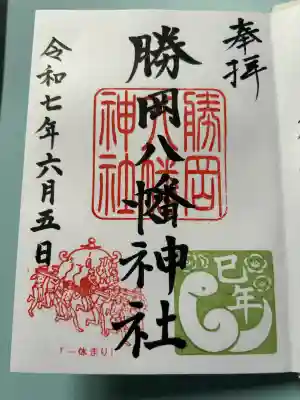 奉拝
勝岡八幡神社
勝岡八幡神社
令和七年六月五日
巳年
「一体走り」